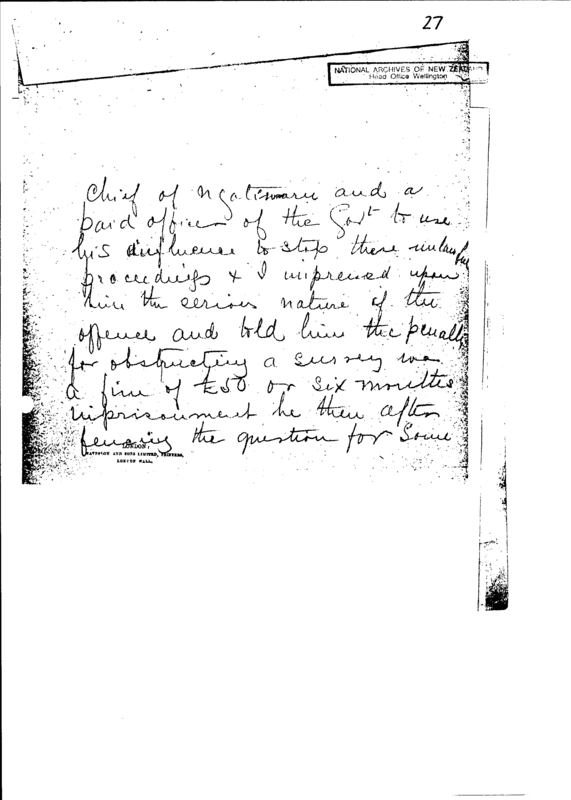 27
NATIONAL ARCHIVES OF NEW ZEALAND
Head Office Wellington
Chief of Ngatimaru and a
paid officer of the Govt to use
his influence to stop these unlawful
proceedings & I impressed upon
him the serious nature of the
offence and told him the penalty
for obstructing a survey was
a fine of £50 or six months
imprisonment he then after
fencing the question for some
LONDON:
AND SONS LIMITED, PRINTERS,
LONDON WALL.